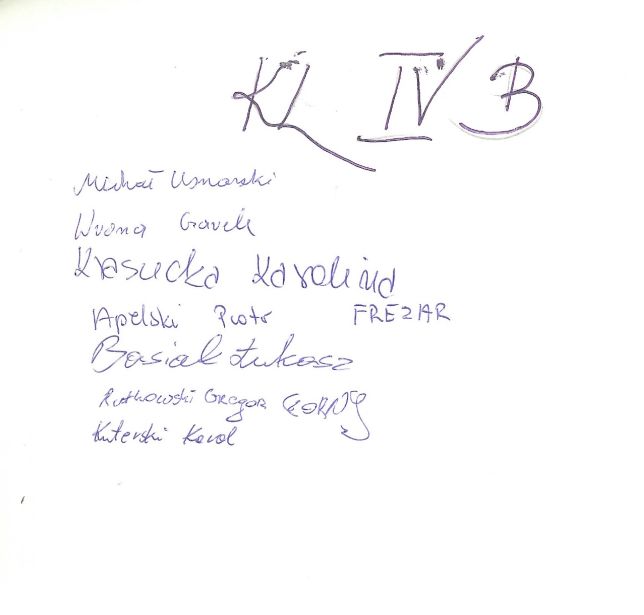 KL IV B
Michał Usnarski
Iwona Gawek
Krasucka Karolina
Apelski Piotr FREZIAR
Basiak Łukasz
Rutkowski Gregor
Kuterski Karol